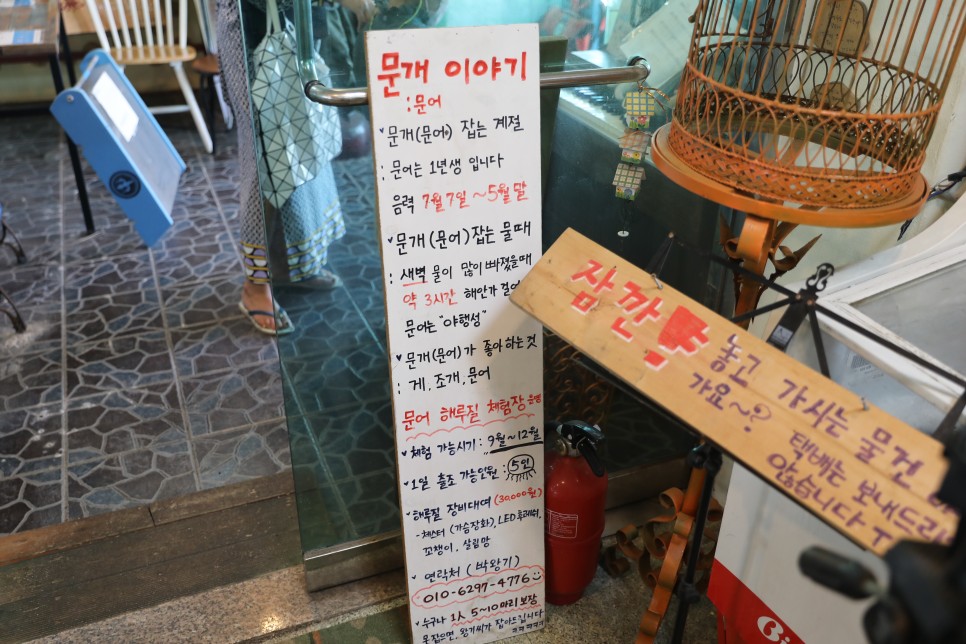 문개 이야기
:문어
문개(문어) 잡는 계절
: 문어는 1년생 입니다
음력 7월7일 ~5월 말
문개(문어)잡는 물때
: 새벽 물이 많이 빠졌을때
약 3시간 해안가
문어는 "야행성"
문개(문어)가 좋아하는것
: 게, 조개, 문어
문어 해루질 체험장 운영
체험 가능시기 : 9월~12월
1일 출조 가능인원 : 5인
해루질 장비대여 (30,000원)
- 체스터 (가슴장화), LED 후레쉬,
꼬챙이, 살림망
연락처 (박왕기)
010-6297-4776
누구나 1人 5~10마리 보장
못잡으면 왕기씨가 잡아드립니다
잠깐
놓고 가시는 물건
가요~?
택배는 보내드리
않습니다